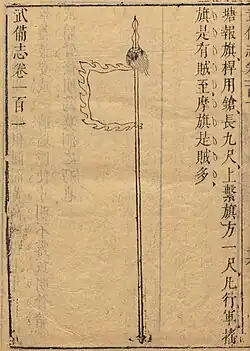 塘報旗桿用鎗長九尺上繫旗方一尺凡行軍搖
旗是有賊至摩旗是賊多
武備志卷一百一